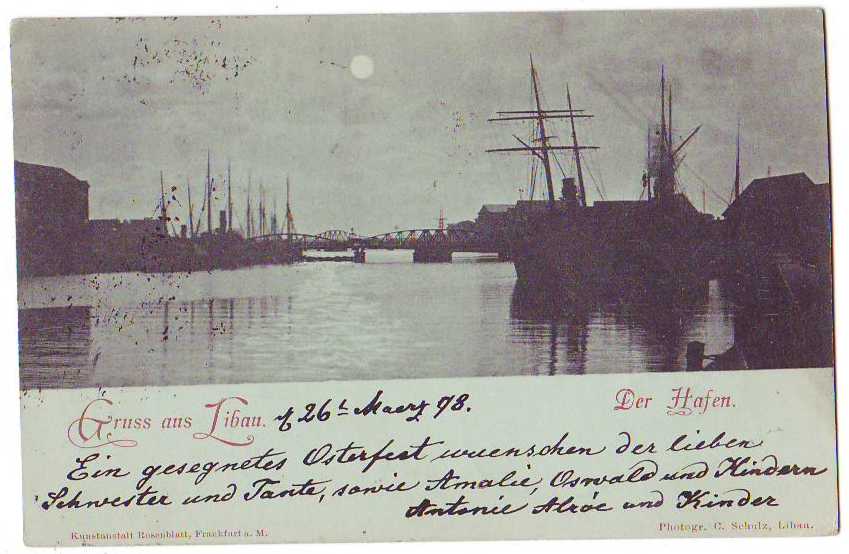 Gruss aus Libau. 26t Maerz 98. Der Hafen.
Ein gesegnetes Osterfest wuenschen der lieben
Schwester und Tante, sowie Amalie, Oswald und Kindern
Antonie Alröe und Kinder
Kunstanstalt Rosenblatt, Frankfurt a. M. Photogr. C. Schulz, Libau.